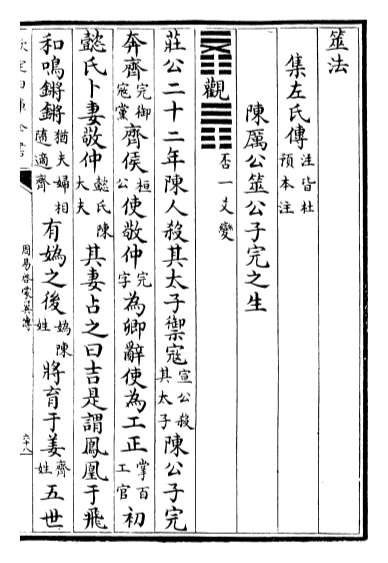 筮法
集左氏傳注皆杜預本注
陳厲公筮公子完之生
觀否一爻變
莊公二十二年陳人殺其太子禦寇宣公殺其太子陳公子完
奔齊完御寇黨齊侯桓公使敬仲完字為卿辭使為工正掌百工官初
懿氏卜妻敬仲懿氏陳大夫其妻占之曰吉是謂鳳凰于飛
和鳴鏘鏘猶夫婦相隨適齊有媯之後媯陳姓將育于姜齊姓五世
欽定四庫全書
周易啓蒙翼傳
六十八